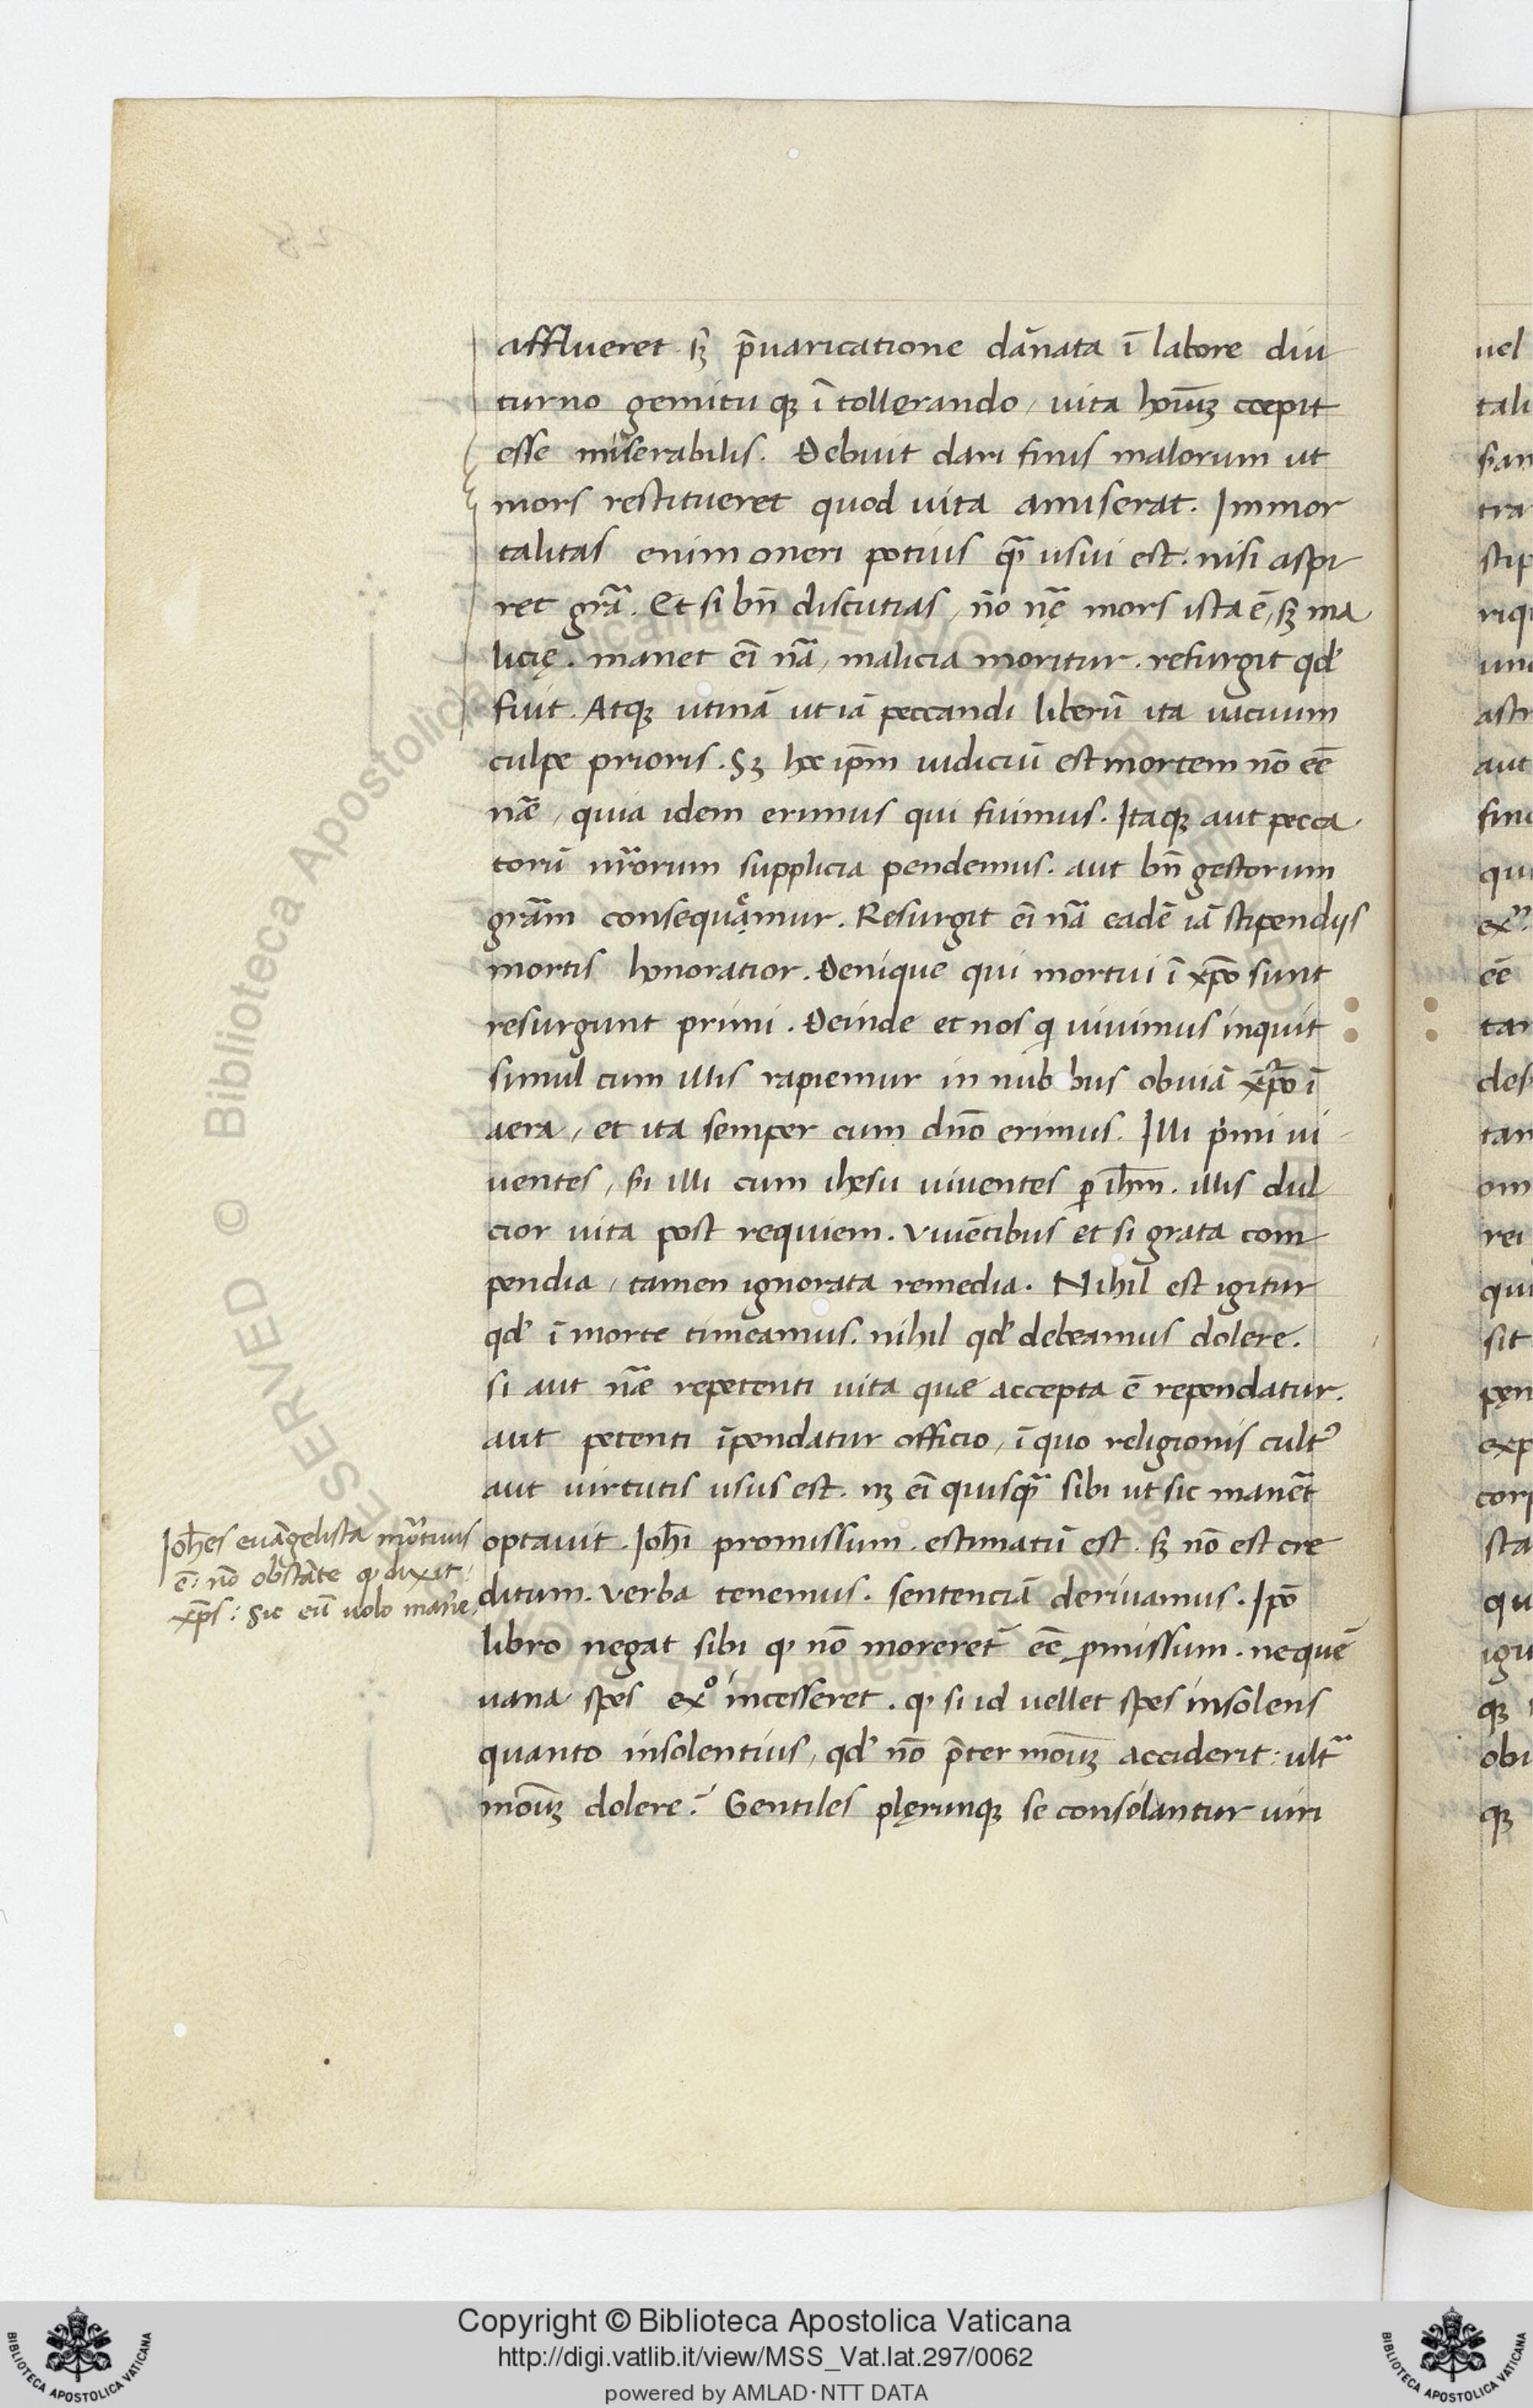 afflueret. sꝫ p̄uaricatione dānata ī labore diu
turno gemitu qꝫ ī tollerando, uita hoīuꝫ cœpit
esse miserabilis. Debuit dari finis malorum ut
mors restitueret quod uita amiserat. Immor
talitas enim oneri potius qᷓ usui est: nisi aspi
ret grā. Et si bn̄ discutias, nō nę̄ mors ista ē, sꝫ ma
licię. manet eī nā, malicia moritur. resurgit qd'
fuit. Atqꝫ utinā ut iā peccandi liberū ita uacuum
culpe prioris. Sꝫ hoc ip̄m iudiciū est mortem nō eē
nāe, quia idem erimus qui fuimus. Itaqꝫ aut pecca
torū nr̄orum supplicia pendemus. aut bn̄ gestorum
grām consequęmur. Resurgit eī nā eadē iā stipendijs
mortis honoratior. Denique qui mortui ī xp̄o sunt
resurgunt primi. Deinde et nos q uiuimus inquit
simul cum illis rapiemur in nubibus obuiā xp̄o ī
aera, et ita semper cum dn̄o erimus. Illi pͥmi ui
uentes, sn̄ illi cum ihesu uiuentes ꝑ ih̄m. illis dul
cior uita post requiem. Viuētibus et si grata com
pendia, tamen ignorata remedia. Nihil est igitur
qd' ī morte timeamus. nihil qd' debeamus dolere.
si aut nāe repetenti uita quæ accepta ē rependatur.
aut petenti īpendatur officio, ī quo religionis cultꝰ
aut uirtutis usus est. nꝫ eī quisqᷓ sibi ut sic manēt
optauit. Ioh̄i promissum estimatū est. sꝫ nō est cre
ditum. Verba tenemus. sentenciā deriuamus. Ip̄o
libro negat sibi ꝙ nō moreret̄ eē ꝓmissum. ne quē
uana spes exº incesseret. ꝙ si id uellet spes insolens
quanto insolentius, qd' nō p̄ter moīuꝫ acciderit: ultᷓ
moīuꝫ dolere? Gentiles plęrunqꝫ se consolantur uiri
Ioh̄es euāgelista mortuus
ē: nō obstāte ꝙ dixit:
xp̄s: Sic eū uolo manē̄.
uel
tali
tra
stip
aut
qui
eē
des
tan
om
rei
qui
sit
exp
corp
sta
qu
qꝫ
obi
qꝫ
© Biblioteca Apostolica Vaticana
Copyright © Biblioteca Apostolica Vaticana
http://digi.vatlib.it/view/MSS_Vat.lat.297/0062
powered by AMLAD·NTT DATA
BIBLIOTECA APOSTOLICA VATICANA
BIBLIOTECA APOSTOLICA VATICANA